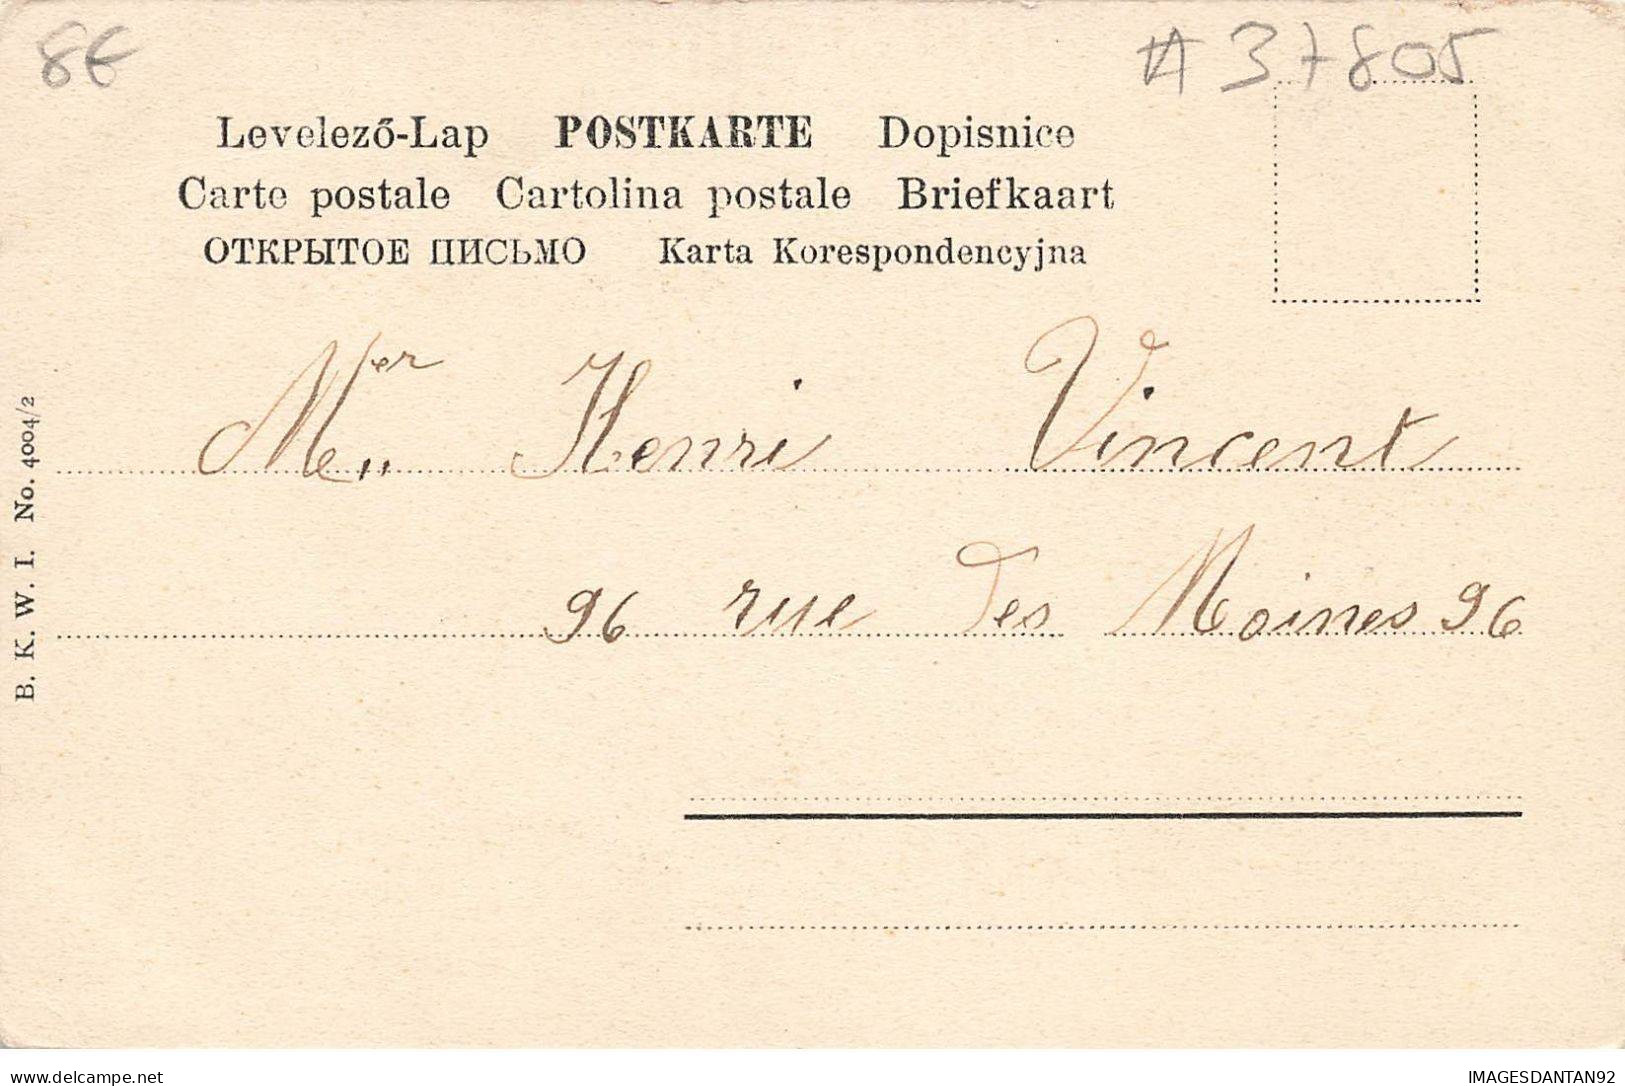 8€
#37805
Levelező-Lap POSTKARTE Dopisnice
Carte postale Cartolina postale Briefkaart
ОТКРЫТОЕ ПИСЬМО Karta Korespondencyjna
Mer Henri Vincent
96 rue des Moines 96
B. K. W. I. No. 4004/2
delcampe.net
IMAGESDANTAN92